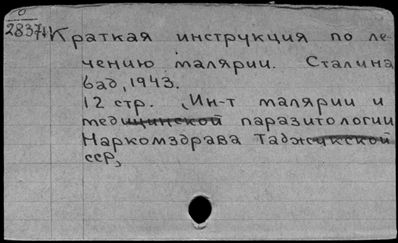 0
28374
Краткая инструкция по ле-
чению малярии. Сталина
бад, 1943.
12 стр. (Ин-т малярии и
медицинской паразитологии
Наркомздрава Таджикской
ССР)